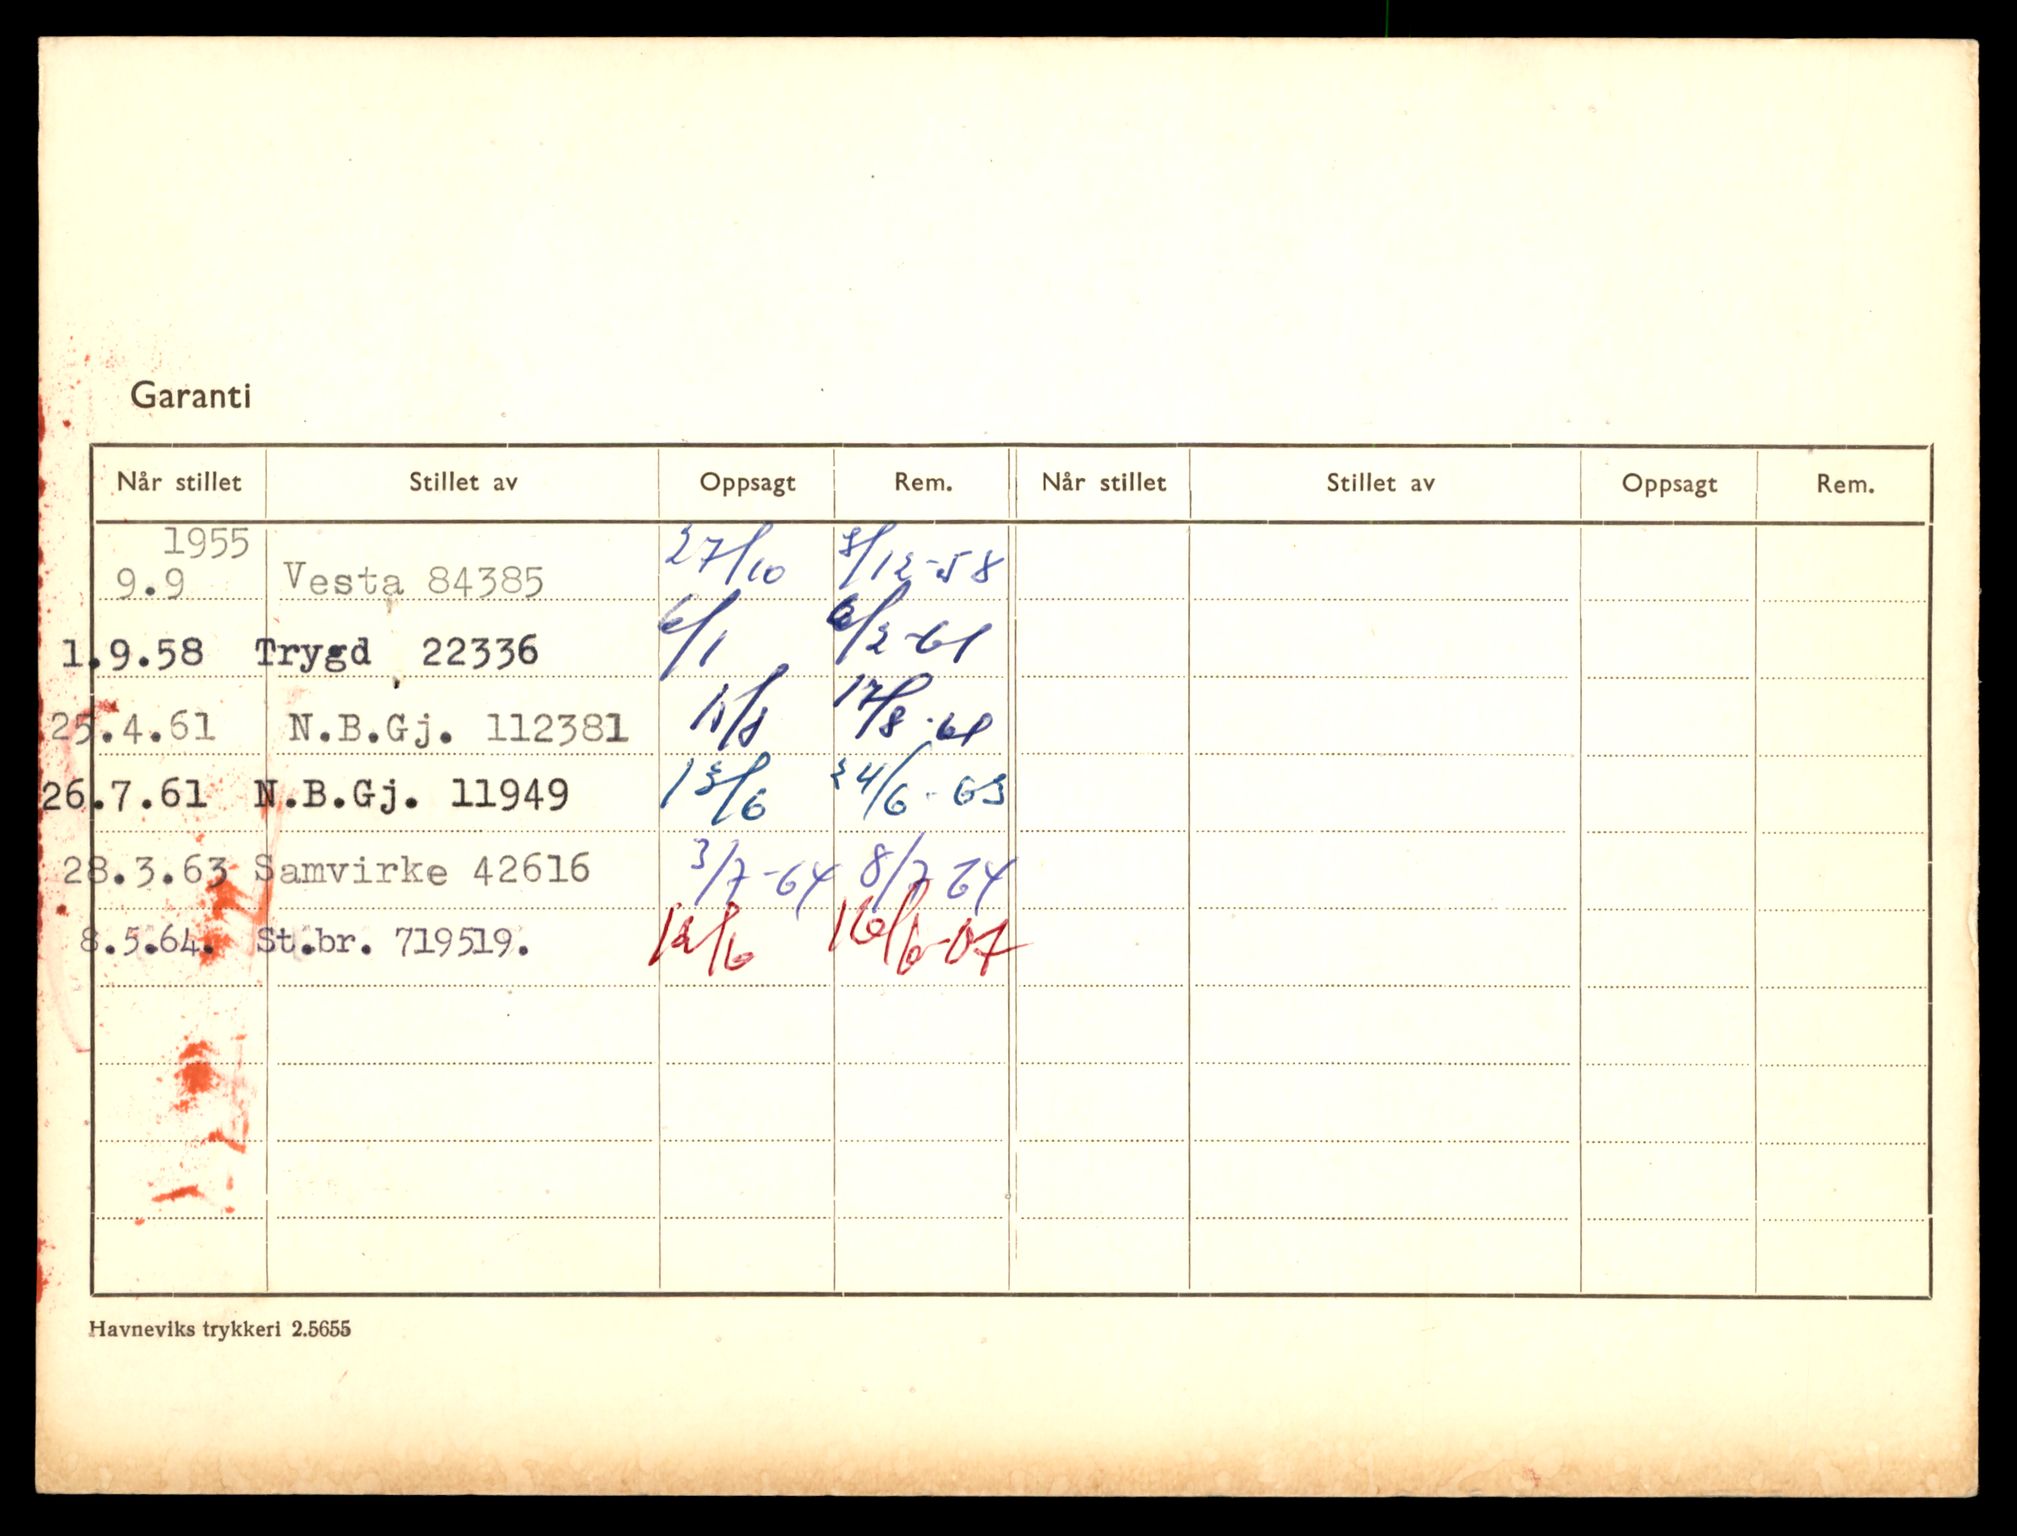 Garanti
Når stillet Stillet av Oppsagt Rem. Når stillet Stillet av Oppsagt Rem.
1955
9.9 Vesta 84385 27/10 8/12-58
1.9.58 Trygd 22336 6/1 6/2-61
25.4.61 N.B.Gj. 112381 17/8-61
26.7.61 N.B.Gj. 11949 13/6 24/6-63
28.3.63 Samvirke 42616 3/7-64 8/7 64
8.5.64. St.br. 719519.
Havneviks trykkeri 2.5655